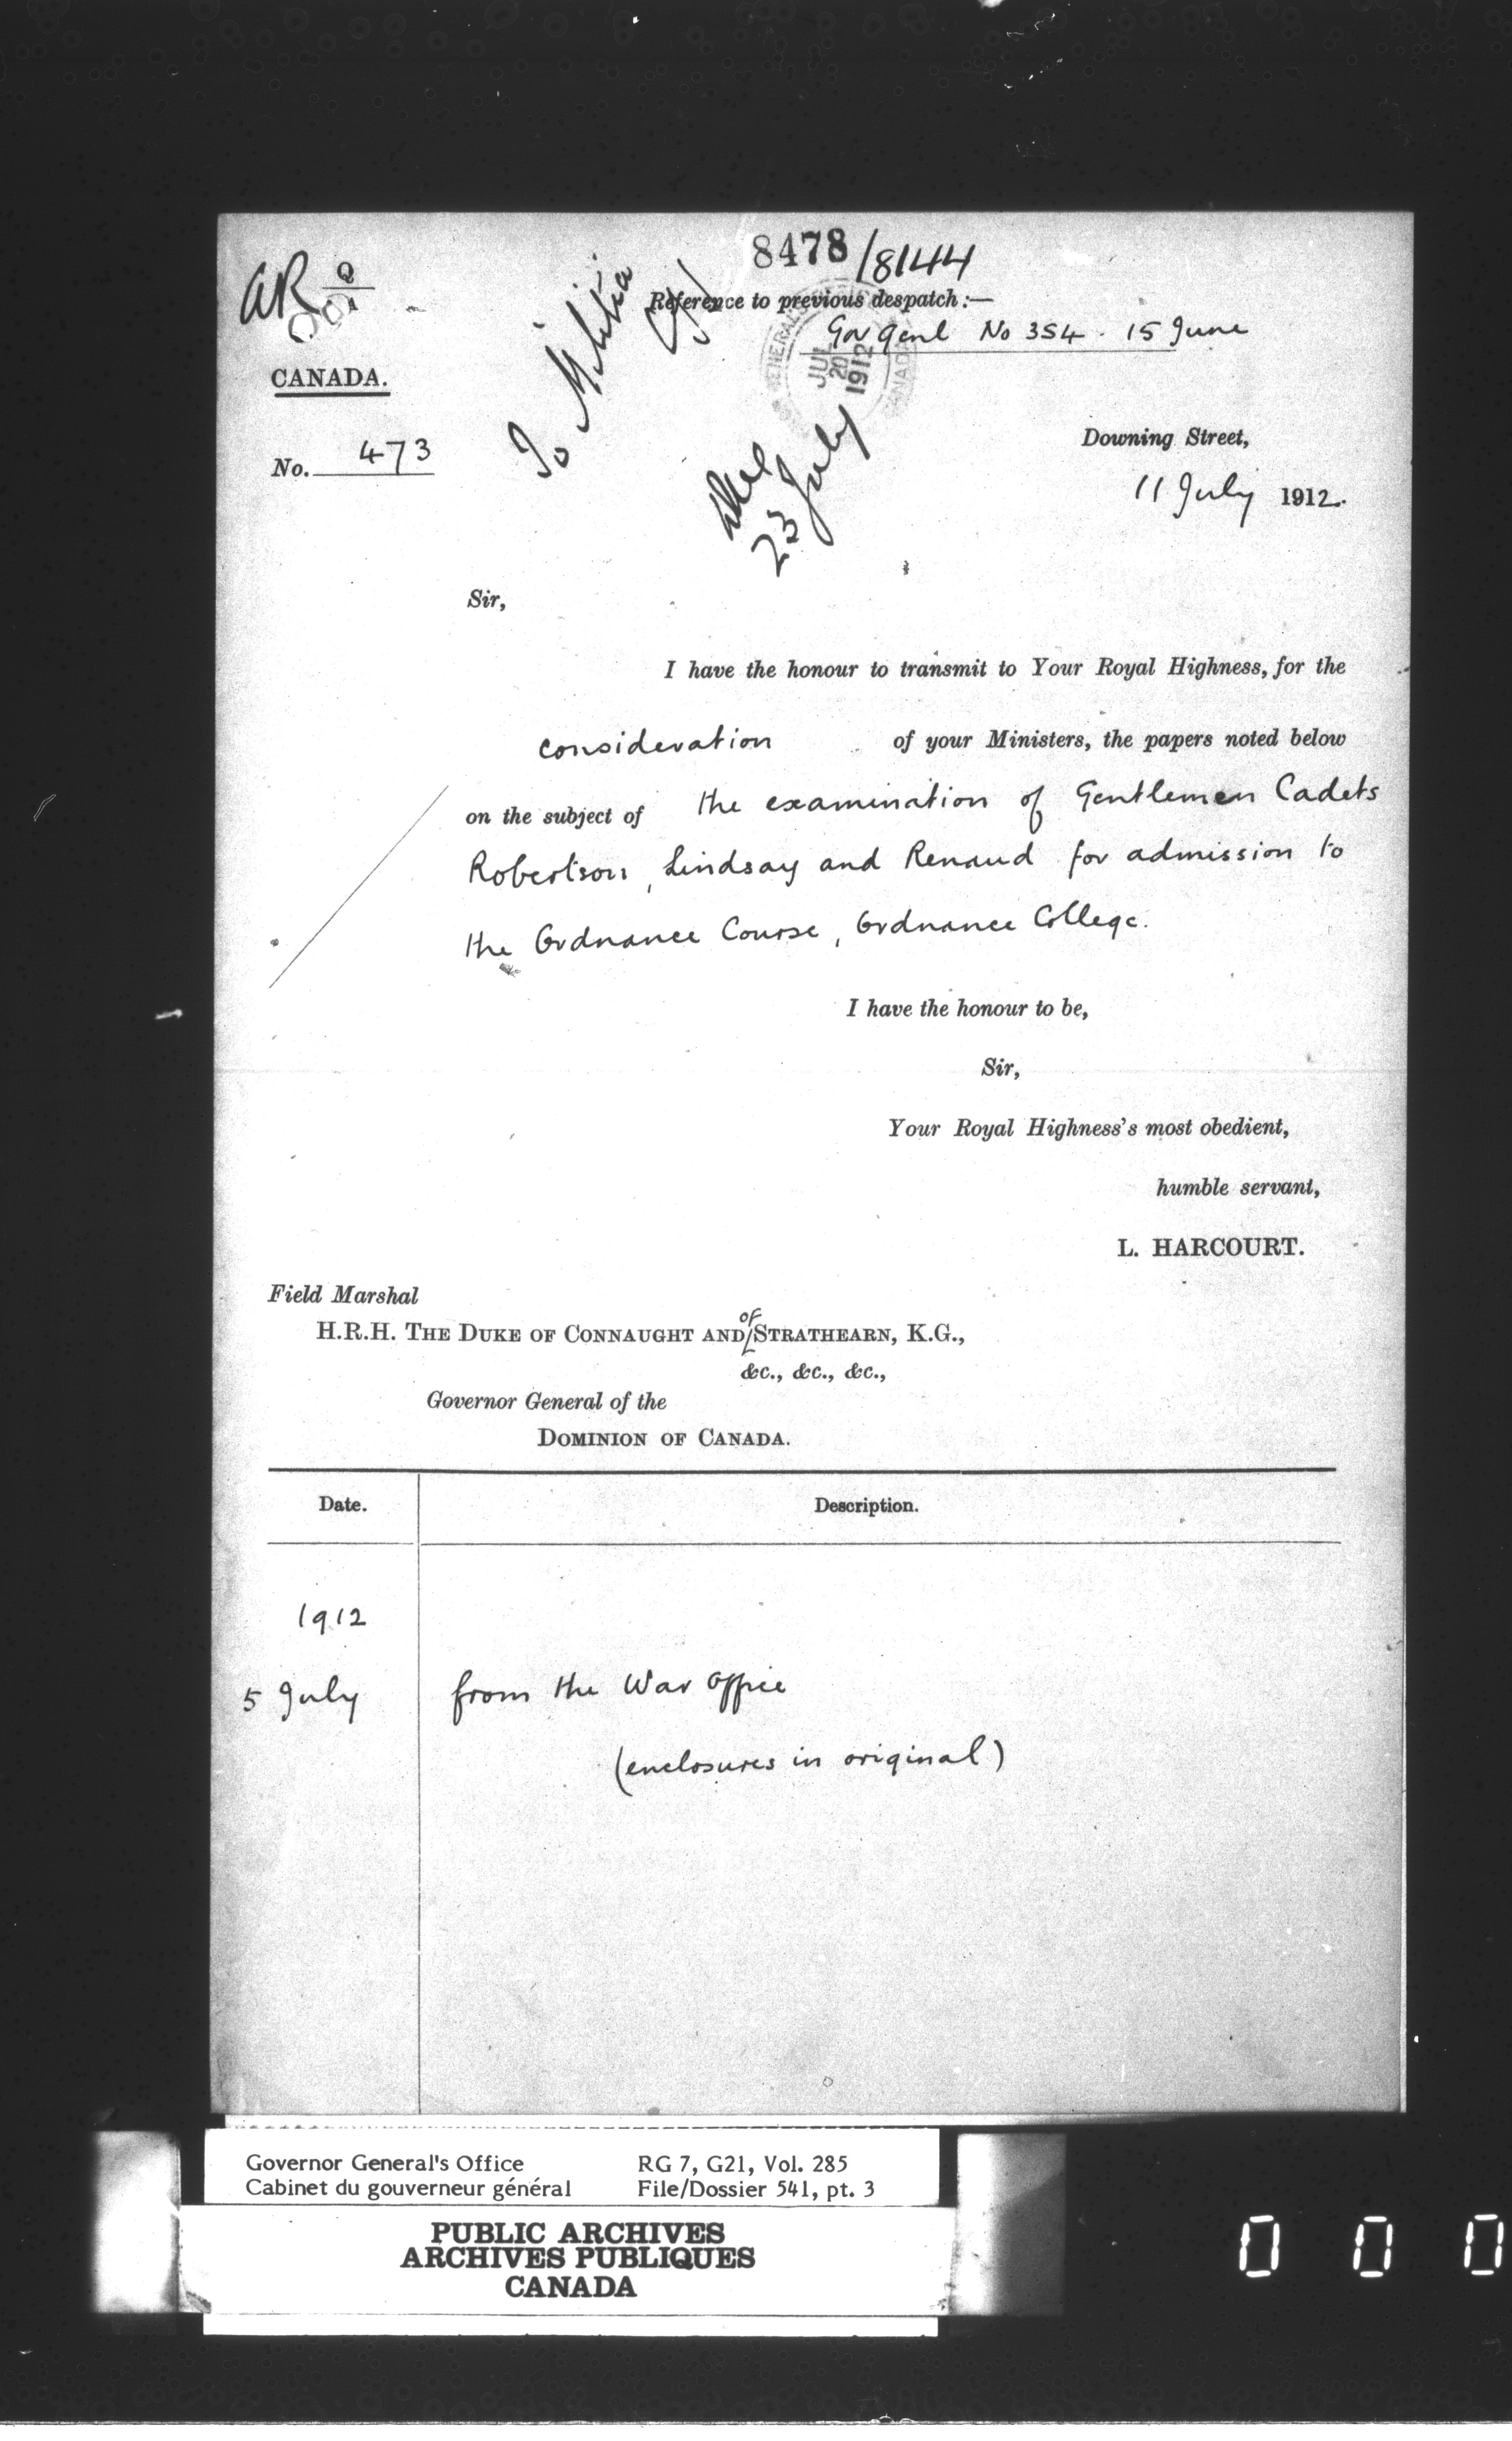 8478/8144
AR Q
Reference to previous despatch:—
Gov Genl No 354 . 15 June
JUL
20
1912
CANADA.
To Militia
23 July
No. 473
Downing Street,
11 July 1912.
Sir,
I have the honour to transmit to Your Royal Highness, for the
consideration of your Ministers, the papers noted below
on the subject of the examination of Gentlemen Cadets
Robertson, Lindsay and Renaud for admission to
the Ordnance Course, Ordnance College.
I have the honour to be,
Sir,
Your Royal Highness's most obedient,
humble servant,
L. HARCOURT.
Field Marshal
of
H.R.H. THE DUKE OF CONNAUGHT AND STRATHEARN, K.G.,
&c., &c., &c.,
Governor General of the
DOMINION OF CANADA.
Date. Description.
1912
5 July from the War Office
(enclosures in original)
Governor General's Office RG 7, G21, Vol. 285
Cabinet du gouverneur général File/Dossier 541, pt. 3
PUBLIC ARCHIVES
ARCHIVES PUBLIQUES
CANADA
0 0 0